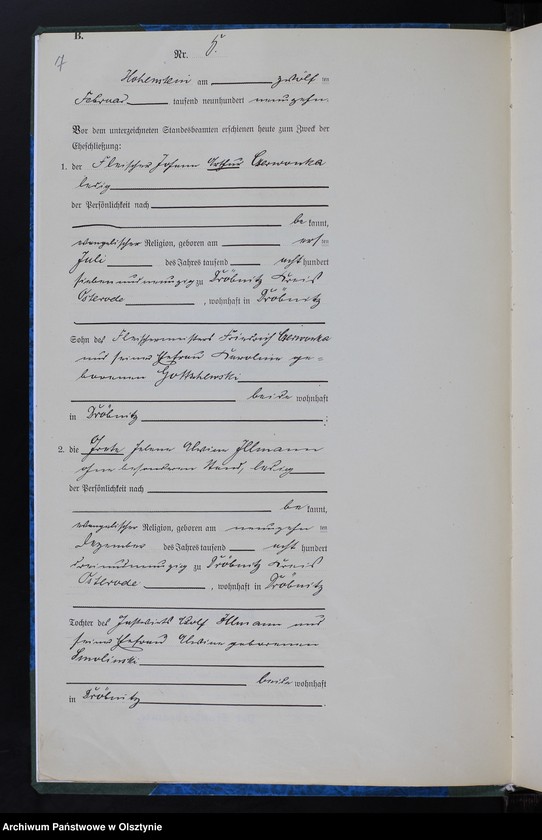 B.
7
Nr. 5.
Hohenstein am zwölf ten
Februar tausend neunhundert neunzehn.
Vor dem unterzeichneten Standesbeamten erschienen heute zum Zweck der
Eheschließung:
1. der Fleischer Johann Arthur Czerwonka
ledig
der Persönlichkeit nach
be kannt,
evangelischer Religion, geboren am ers ten
Juli des Jahres tausend acht hundert
siebenundneunzig zu Dröbnitz Kreis
Osterode , wohnhaft in Dröbnitz
Sohn des Fleischermeisters Friedrich Czerwonka
und seiner Ehefrau Karoline ge-
borenen
beide wohnhaft
in Dröbnitz
2. die Grete Helene Alwine Illmann
ohne besonderen Stand, ledig
der Persönlichkeit nach
be kannt,
evangelischer Religion, geboren am neunzehn ten
Dezember des Jahres tausend acht hundert
dreiundneunzig zu Dröbnitz Kreis
Osterode , wohnhaft in Dröbnitz
Tochter des Gastwirts Adolf Illmann und
seiner Ehefrau Alwine geborenen
Smolinski
beide wohnhaft
in Dröbnitz
Archiwum Państwowe w Olsztynie